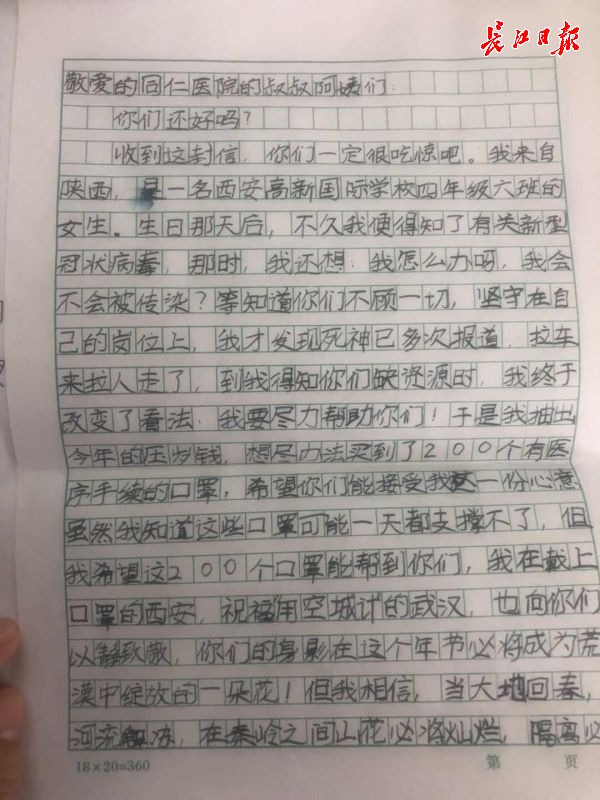 长江日报
敬爱的同仁医院的叔叔阿姨们：
你们还好吗？
收到这封信，你们一定很吃惊吧。我来自
陕西，是一名西安高新国际学校四年级六班的
女生。生日那天后，不久我便得知了有关新型
冠状病毒，那时，我还想：我怎么办呀，我会
不会被传染？等知道你们不顾一切，坚守在自
己的岗位上，我才发现死神已多次报道，拉车
来拉人走了，到我得知你们缺资源时，我终于
改变了看法：我要尽力帮助你们！于是我抽出
今年的压岁钱，想尽办法买到了200个有医
序手续的口罩，希望你们能接受我这一份心意
虽然我知道这些口罩可能一天都支撑不了，但
我希望这200个口罩能帮到你们，我在戴上
口罩的西安，祝福用空城计的武汉，也向你们
以静致敬，你们的身影在这个年节必将成为荒
漠中绽放的一朵花！但我相信，当大地回春，
河流解冻，在秦岭之间山花必将灿烂，隔离必
18×20=360
第 页